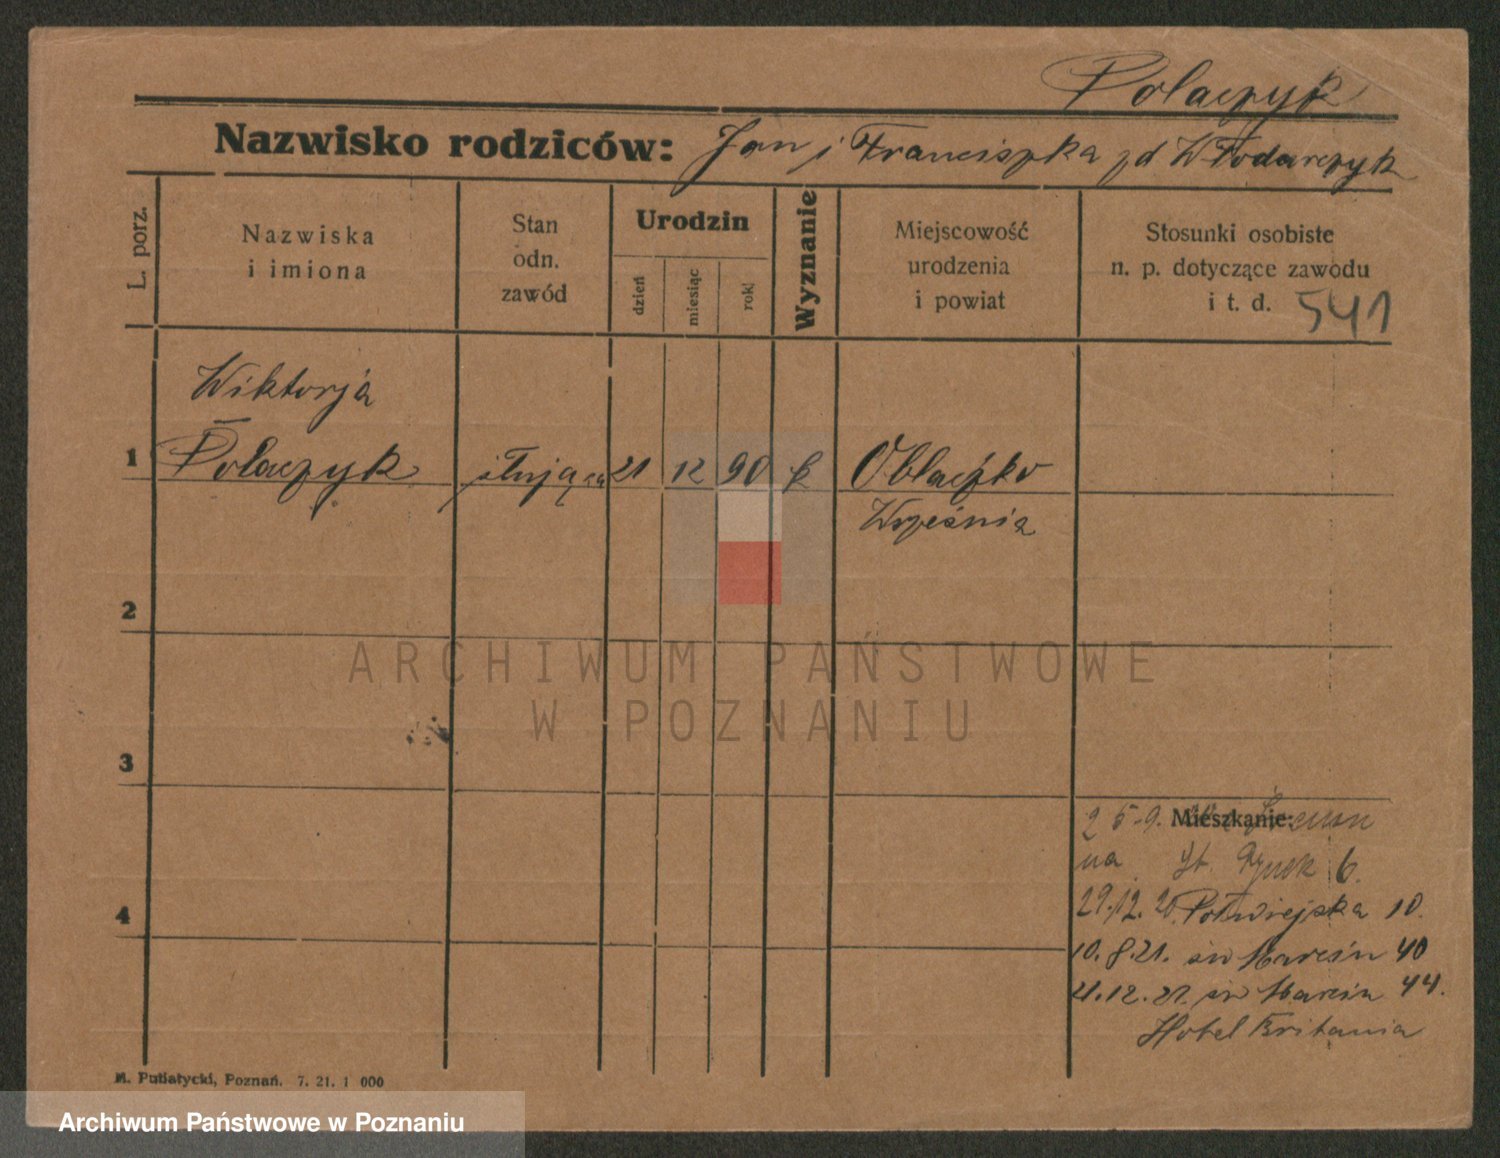 Polaczyk
Nazwisko rodziców: Jan i Franciszka zd Włodarczyk
L. porz.
Nazwiska i imiona
Stan odn. zawód
Urodzin
dzień
miesiąc
rok
Wyznanie
Miejscowość urodzenia i powiat
Stosunki osobiste n. p. dotyczące zawodu i t. d. 541
Wiktorja
1 Polaczyk służąca 21 12 90 k Obłaczko
Września
2
ARCHIWUM PAŃSTWOWE
W POZNANIU
3
Mieszkanie:
25.9.
na St. Rynek 6.
4
29.12.20 Półwiejska 10.
10.8.21. św Marcin 40
21.12.21. św Marcin 44.
Hotel Britania
M. Putiatycki, Poznań. 7. 21. 1 000
Archiwum Państwowe w Poznaniu